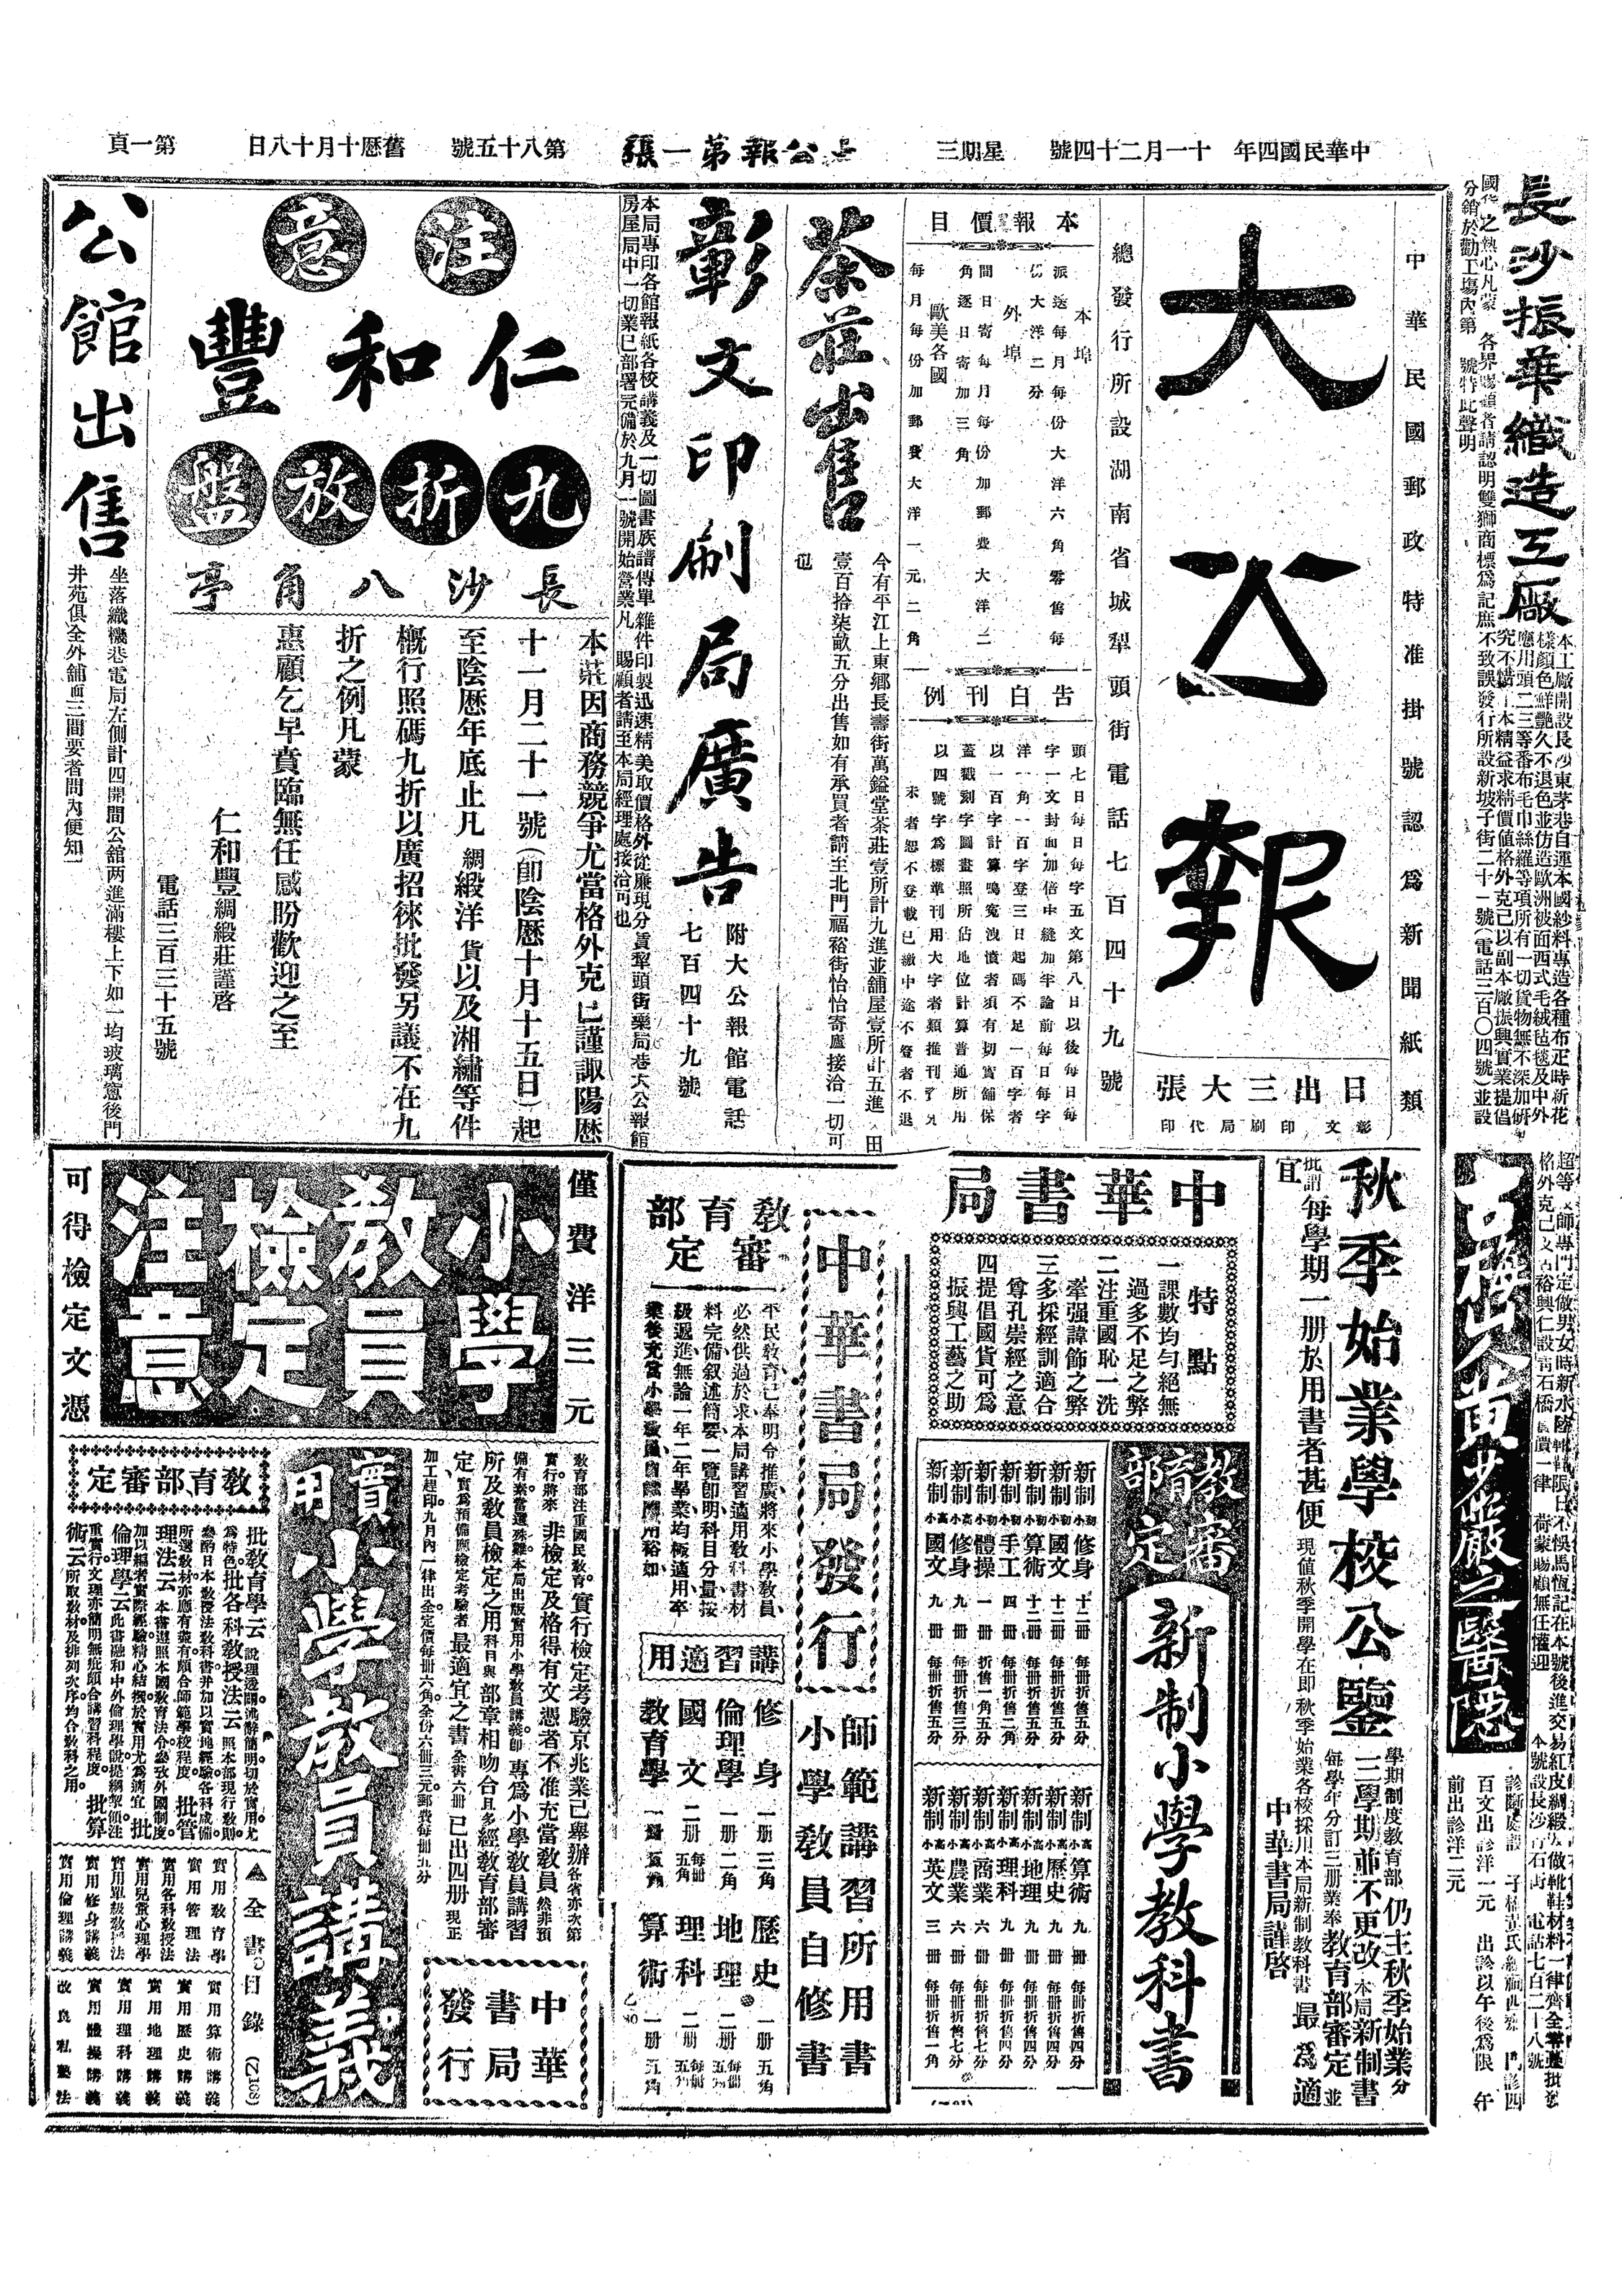 中華民國四年 十一月二十四號 星期三 大公報第一張 第八十五號 舊歷十月十八日 第一頁
長沙振華織造工廠
本工廠開設長沙東茅巷自運本國紗料專造各種布疋時新花
樣顏色鮮艷久不退色並仿造歐洲被面西式毛絨毡毯及中外
應用頭二三等番布毛巾絲羅等項所有一切貨物無不深加研
分銷於勸工塲內第 號特此聲明
中華民國郵政特准掛號認爲新聞紙類
大公報
日出三大張
彰文印刷局代印
總發行所設湖南省城犁頭街電話七百四十九號
本報價目
本埠
派送每月每份大洋六角零售每
份大洋二分
外埠
間日寄每月每份加郵費大洋二
角逐日寄加三角
歐美各國
每月每份加郵費大洋一元二角
告白刊例
頭七日每日每字五文第八日以後每日每
字一文封面加倍中縫加半論前每日每字
洋一角一百字登三日起碼不足一百字者
以一百字計算鳴寃洩憤者須有切實舖保
蓋戳刻字圖畫照所佔地位計算普通所用
以四號字爲標準刊用大字者類推刊資先
未者恕不登載已繳中途不登者不退
茶莊出售
今有平江上東鄉長壽街萬鎰堂茶莊壹所計九進並舖屋壹所計五進 田
壹百拾柒畝五分出售如有承買者請至北門福裕街怡怡寄廬接洽一切可
也
彰文印刷局廣告
附大公報館電話
七百四十九號
本局專印各館報紙各校講義及一切圖書族譜傳單雜件印製迅速精美取價格外從廉現分賃犁頭街藥局巷大公報館
房屋局中一切業已部署完備於九月一號開始營業凡 賜顧者請至本局經理處接洽可也
注意
仁和豐
九折放盤
長沙八角亭
本莊因商務競爭尤當格外克己謹諏陽歷
十一月二十一號(卽陰歷十月十五日)起
至陰歷年底止凡 綢緞洋貨以及湘繡等件
概行照碼九折以廣招徠批發另議不在九
折之例凡蒙
惠顧乞早賁臨無任感盼歡迎之至
仁和豐綢緞莊謹啓
電話三百三十五號
公館出售
坐落織機巷電局左側計四開間公舘两進滿樓上下如一均玻璃窻後門
井苑俱全外舖面三間要者問內便知
秋季始業學校公鑒
學期制度教育部 仍主秋季始業分
三學期並不更改本局新制書
每學年分訂三册業奉教育部審定並
批謂每學期一册於用書者甚便 現值秋季開學在即秋季始業各校採用本局新制教科書 最爲適
宜
中華書局謹啓
中華書局
特點
一課數均勻絕無
過多不足之弊
二注重國恥一洗
牽强諱飾之弊
三多採經訓適合
尊孔崇經之意
四提倡國貨可爲
振興工藝之助
教育部審定
新制小學教科書
新制初小修身 十二册 每册折售五分
新制初小國文 十二册 每册折售五分
新制初小算術 十二册 每册折售五分
新制初小手工 四册 每册折售二角
新制初小體操 一册 折售一角五分
新制高小修身 九册 每册折售三分
新制高小國文 九册 每册折售五分
新制高小算術 九册 每册折售四分
新制高小歷史 九册 每册折售四分
新制高小地理 九册 每册折售四分
新制高小理科 九册 每册折售四分
新制高小商業 六册 每册折售七分
新制高小農業 六册 每册折售七分
新制高小英文 三册 每册折售一角
中華書局發行
師範講習所用書
小學教員自修書
教育部
審定
平民教育已奉明令推廣將來小學教員
必然供過於求本局講習適用教科書材
料完備叙述簡要一覽卽明科目分量按
級遞進無論一年二年畢業均極適用卒
業後充當小學教員自能應用裕如
講習適用
修身 一册 三角
倫理學 一册 二角
國文 二册 每册五角
教育學
歷史 一册 五角
地理 二册
理科 二册
算術 一册 五角
僅費洋三元
小學教員檢定注意
可得檢定文憑
教育部注重國民教育實行檢定考驗京兆業已舉辦各省亦次第
實行將來 非檢定及格得有文憑者不准充當教員 然非預
備有素當選殊難本局出版實用小學教員講義卽 專爲小學教員講習
所及教員檢定之用 科目與 部章相吻合且多經教育部審
定 實爲預備應檢定考驗者 最適宜之書 全書六册 已出四册 現正
加工趕印九月內一律出全定價每册六角全份六册三元郵費每册五分
實用小學教員講義
中華書局發行
教育部審定
批教育學云 說理透闢措辭簡明切於實用尤
爲特色批各科教授法云 照本部現行教則
參酌日本教授法教科書并加以實地經驗各科成備
所選教材亦應有盡有頗合師範學校程度 批管
理法云 本書遵照本國教育法令參攷外國制度
加以編者實際經驗精心結撰於實用尤爲適宜 批
倫理學云 此書融和中外倫理學說提綱挈領注
重實行文理亦簡明無疵頗合講習科程度 批算
術云 所取教材及排列次序均合教科之用
全書目錄
實用教育學
實用管理法
實用各科教授法
實用兒童心理學
實用單級教授法
實用修身講義
實用倫理講義
實用算術講義
實用歷史講義
實用地理講義
實用理科講義
實用體操講義
改良私塾法